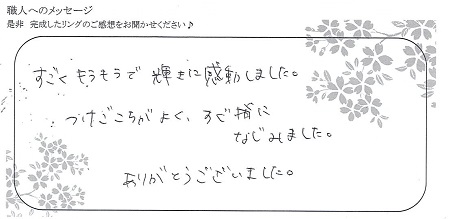 職人へのメッセージ
是非 完成したリングのご感想をお聞かせください♪
すごくキラキラで 輝きに感動しました。
つけごこちがよく、すぐ指に
なじみました。
ありがとうございました。